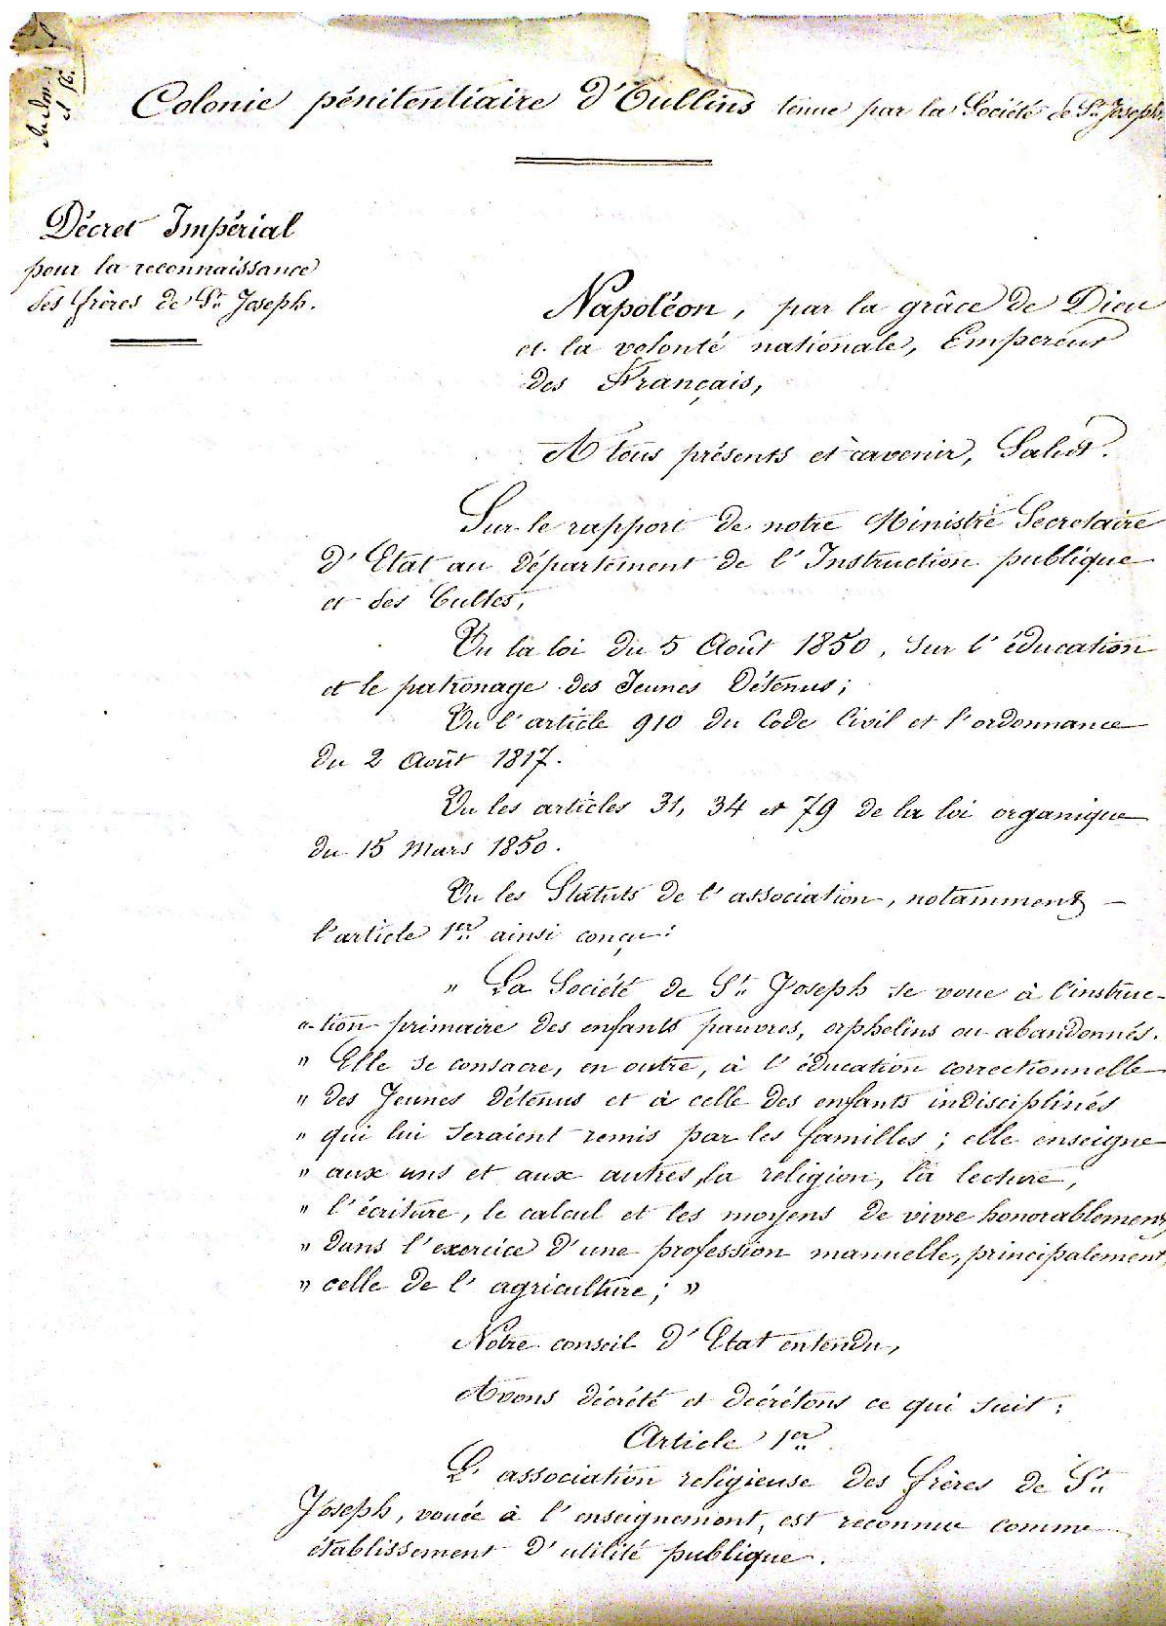 Colonie pénitentiaire d'Oullins tenue par la Société de St. Joseph.
Décret Impérial
pour la reconnaissance
des frères de St. Joseph.
Napoléon, par la grâce de Dieu
et la volonté nationale, Empereur
des Français,
A tous présents et à avenir, Salut.
Sur le rapport de notre Ministre Secrétaire
d'Etat au département de l'Instruction publique
et des Cultes,
Vu la loi du 5 Août 1850, sur l'éducation
et le patronage des Jeunes Détenus;
Vu l'article 910 du Code Civil et l'ordonnance
du 2 Août 1817.
Vu les articles 31, 34 et 79 de la loi organique
du 15 Mars 1850.
Vu les Statuts de l'association, notamment –
l'article 1er ainsi conçu:
" La Société de St. Joseph se voue à l'instruc-
"-tion primaire des enfants pauvres, orphelins ou abandonnés.
" Elle se consacre, en outre, à l'éducation correctionnelle
" des Jeunes détenus et à celle des enfants indisciplinés
" qui lui seraient remis par les familles; elle enseigne
" aux uns et aux autres, la religion, la lecture,
" l'écriture, le calcul et les moyens de vivre honorablement
" dans l'exercice d'une profession manuelle, principalement,
" celle de l'agriculture; "
Notre conseil d'Etat entendu,
Avons décrété et décrétons ce qui suit:
Article 1er.
L'association religieuse des frères de St.
Joseph, vouée à l'enseignement, est reconnue comme
établissement d'utilité publique.